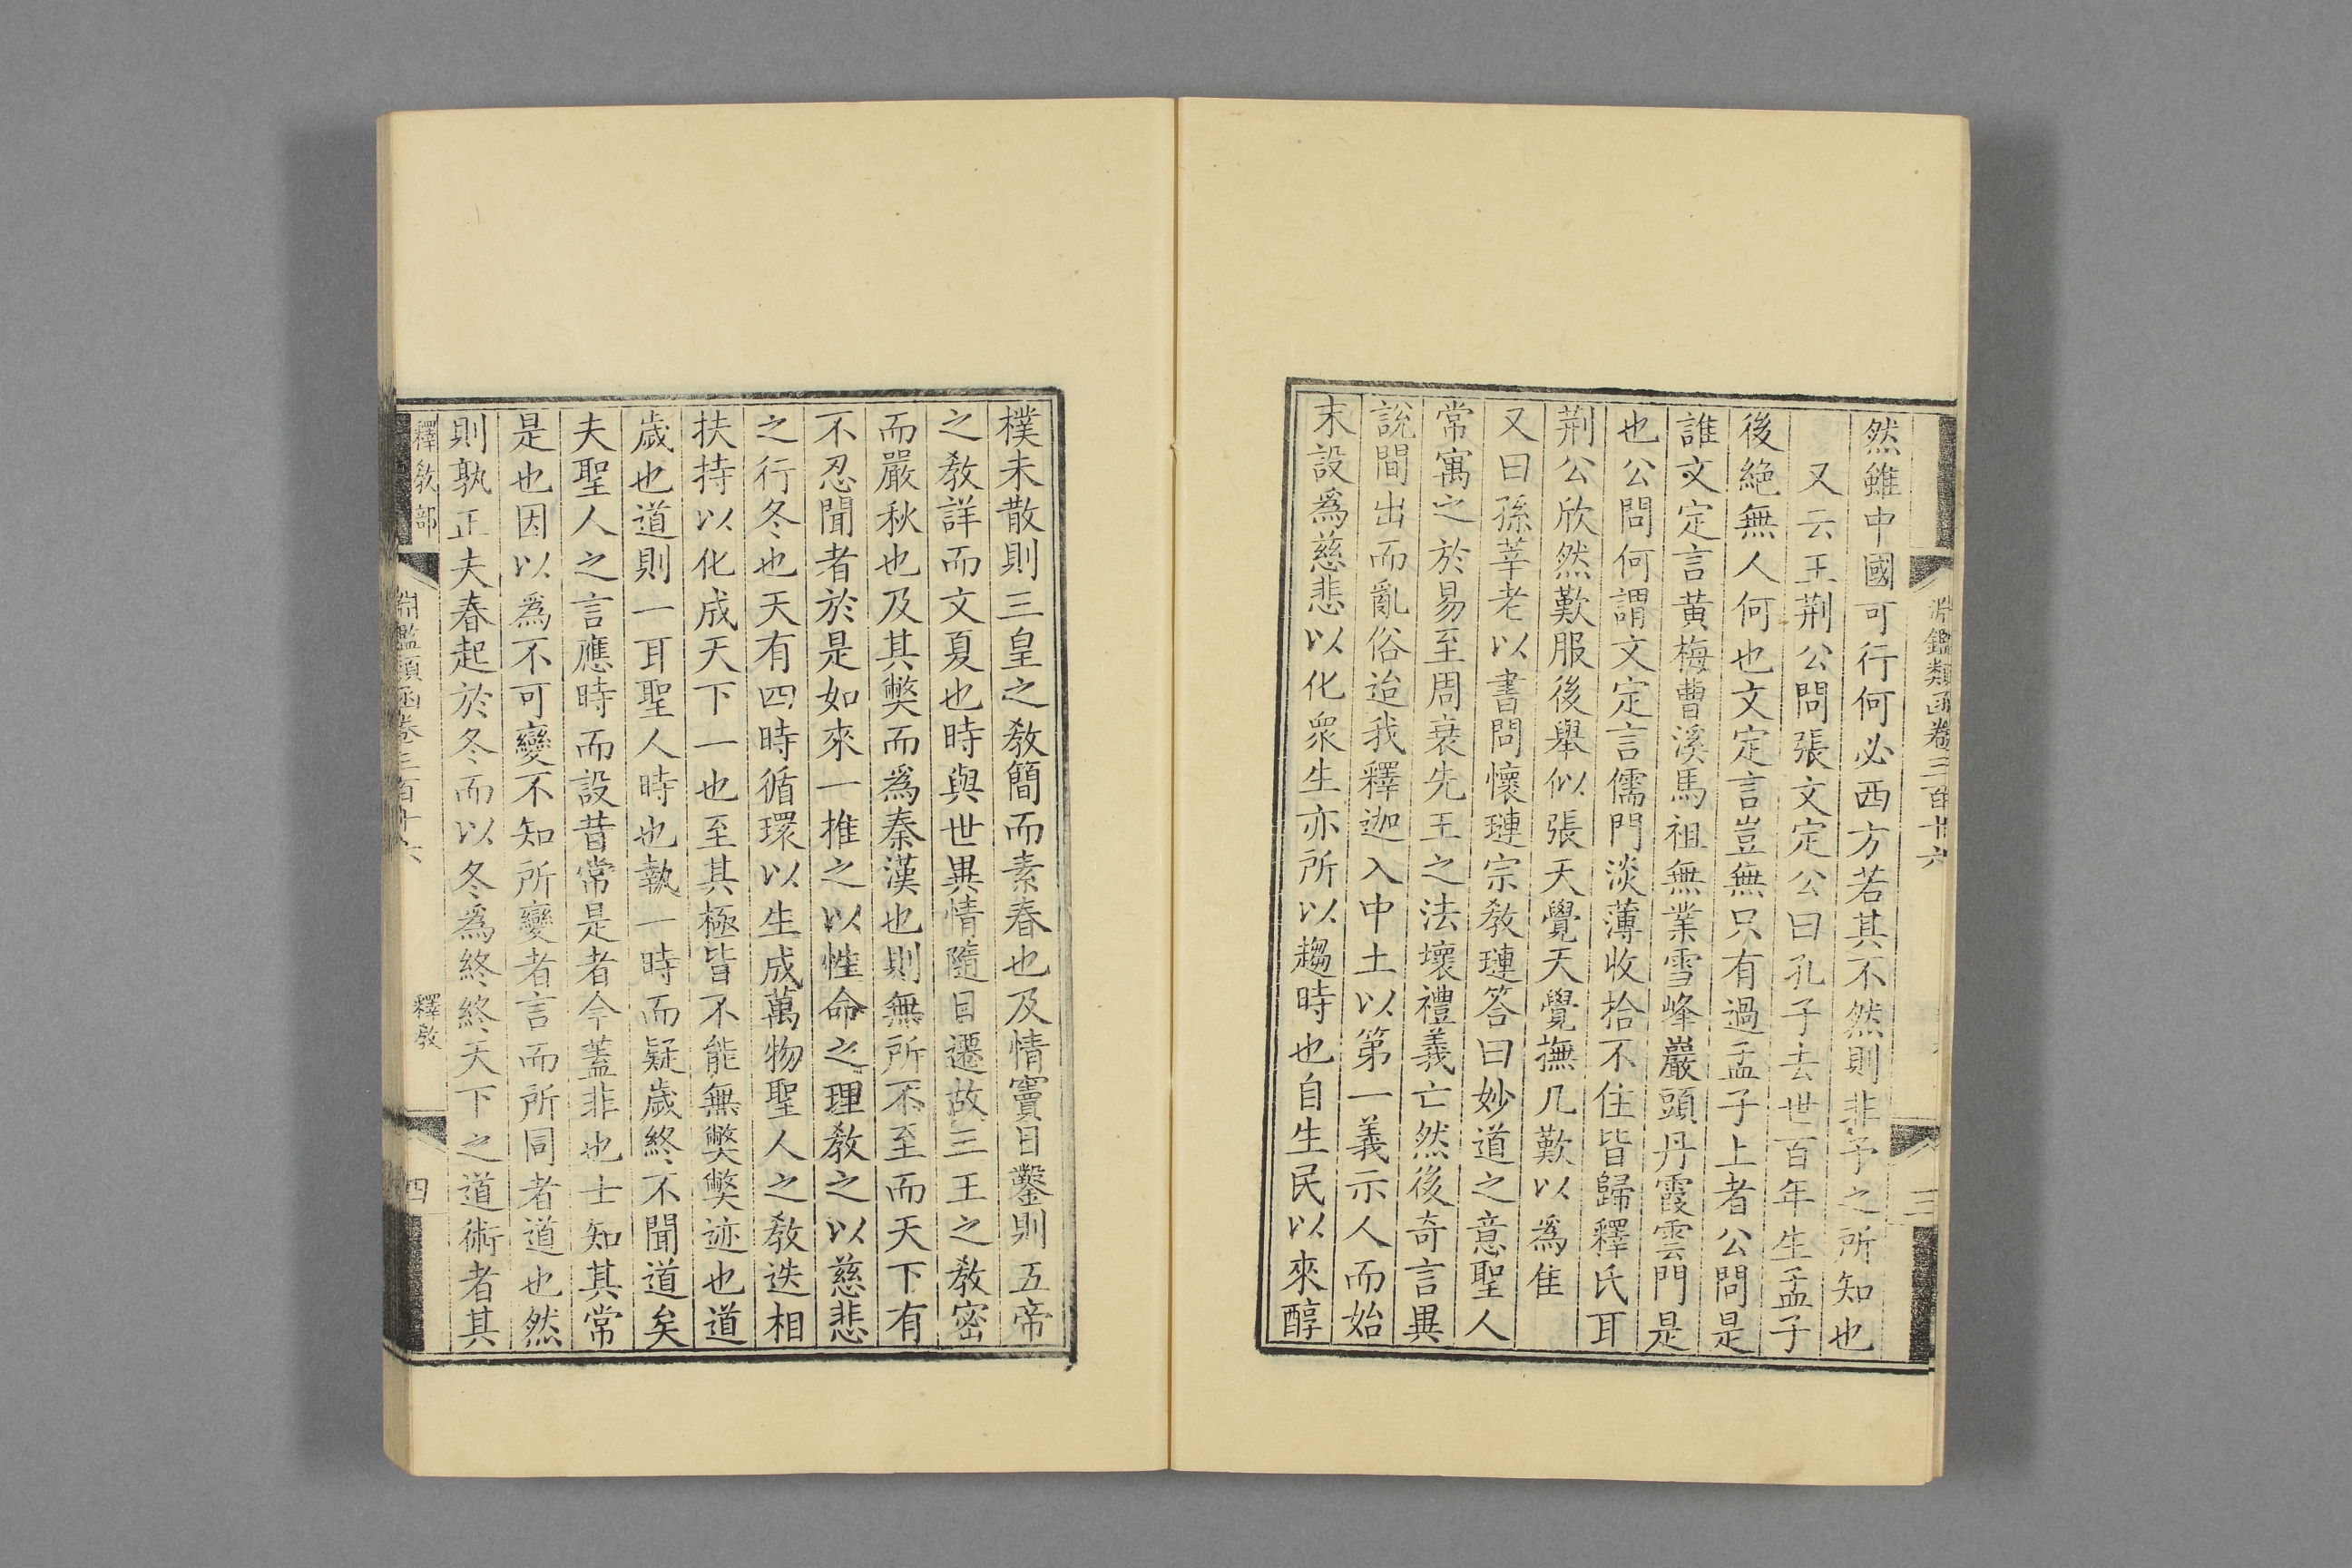 淵鑑類函卷三百十六
三
然雖中國可行何必西方若其不然則非予之所知也
又云王荆公問張文定公曰孔子去世百年生孟子
後絶無人何也文定言豈無只有過孟子上者公問是
誰文定言黄梅曹溪馬祖無業雪峰巖頭丹霞雲門是
也公問何謂文定言儒門淡薄收拾不住皆歸釋氏耳
荆公欣然歎服後舉似張天覺天覺撫几歎以爲隹
又曰孫莘老以書問懷璉宗敎璉答曰妙道之意聖人
常寓之於易至周衰先王之法壞禮義亡然後奇言異
說間出而亂俗迨我釋迦入中土以第一義示人而始
末設爲慈悲以化衆生亦所以趨時也自生民以來醇
樸未散則三皇之敎簡而素春也及情竇日鑿則五帝
之敎詳而文夏也時與世異情隨日遷故三王之敎密
而嚴秋也及其弊而爲秦漢也則無所不至而天下有
不忍聞者於是如來一推之以性命之理敎之以慈悲
之行冬也天有四時循環以生成萬物聖人之敎迭相
扶持以化成天下一也至其極皆不能無弊弊迹也道
歲也道則一耳聖人時也執一時而疑歲終不聞道矣
夫聖人之言應時而設昔常是者今蓋非也士知其常
是也因以爲不可變不知所變者言而所同者道也然
則孰正夫春起於冬而以冬爲終終天下之道術者其
釋敎部
淵鑑類函卷三百十六
釋敎
四